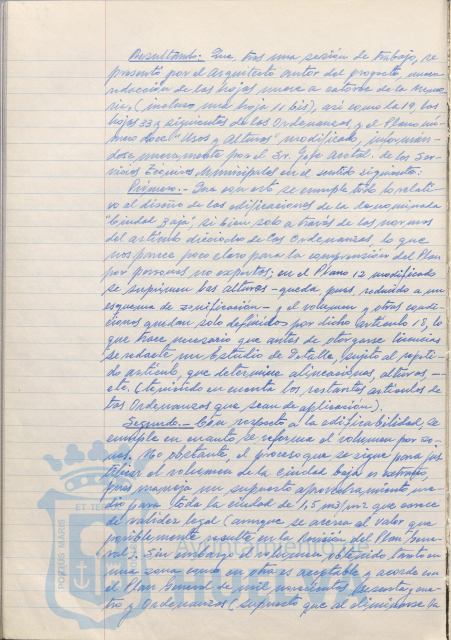 Resultando: Que, tras una sesión de trabajo, se
presentó por el Arquitecto autor del proyecto, nueva
redacción de las hojas nueve a catorce de la Memo-
ria, (incluso una hoja 11 bis), así como la 19, las
hojas 33 y siguientes de las Ordenanzas y el Plano nú-
mero doce "Usos y Alturas" modificado, informán-
dose nuevamente por el Sr. Jefe Acctal. de los Ser-
vicios Técnicos Municipales en el sentido siguiente:
Primero.- Que con esto se cumple todo lo relati-
vo al diseño de las edificaciones de la denominada
"Ciudad Baja", si bien solo a través de las normas
del artículo dieciocho de las Ordenanzas, lo que
nos parece poco claro para la comprensión del Plan
por personas no expertas; en el Plano 12 modificado
se suprimen las alturas - queda pues, reducido a un
esquema de zonificación - y el volumen y otras condi-
ciones quedan solo definidos por dicho artículo 18, lo
que hace necesario que antes de otorgarse licencias
se redacte un Estudio de Detalle, sujeto al repeti-
do artículo, que determine alineaciones, alturas, -
etc. (teniendo en cuenta los restantes artículos de
las Ordenanzas que sean de aplicación).
Segundo.- Con respecto a la edificabilidad, se
cumple en cuanto se reforma el volumen por zo-
nas. No obstante, el proceso que se sigue para jus-
tificar el volumen de la ciudad baja es extraño,
pues maneja un supuesto aprovechamiento me-
dio para toda la ciudad de 1,5 m3/m2 que carece
de validez legal (aunque se acerca al valor que
posiblemente resulte en la Revisión del Plan Gene-
ral). Sin embargo el volumen obtenido tanto en
una zona como en otra es aceptable y acorde con
el Plan General de mil novecientos sesenta y cua-
tro y Ordenanzas (supuesto que al eliminarse la
PORTUS MARIS
ET TER
HUELVA